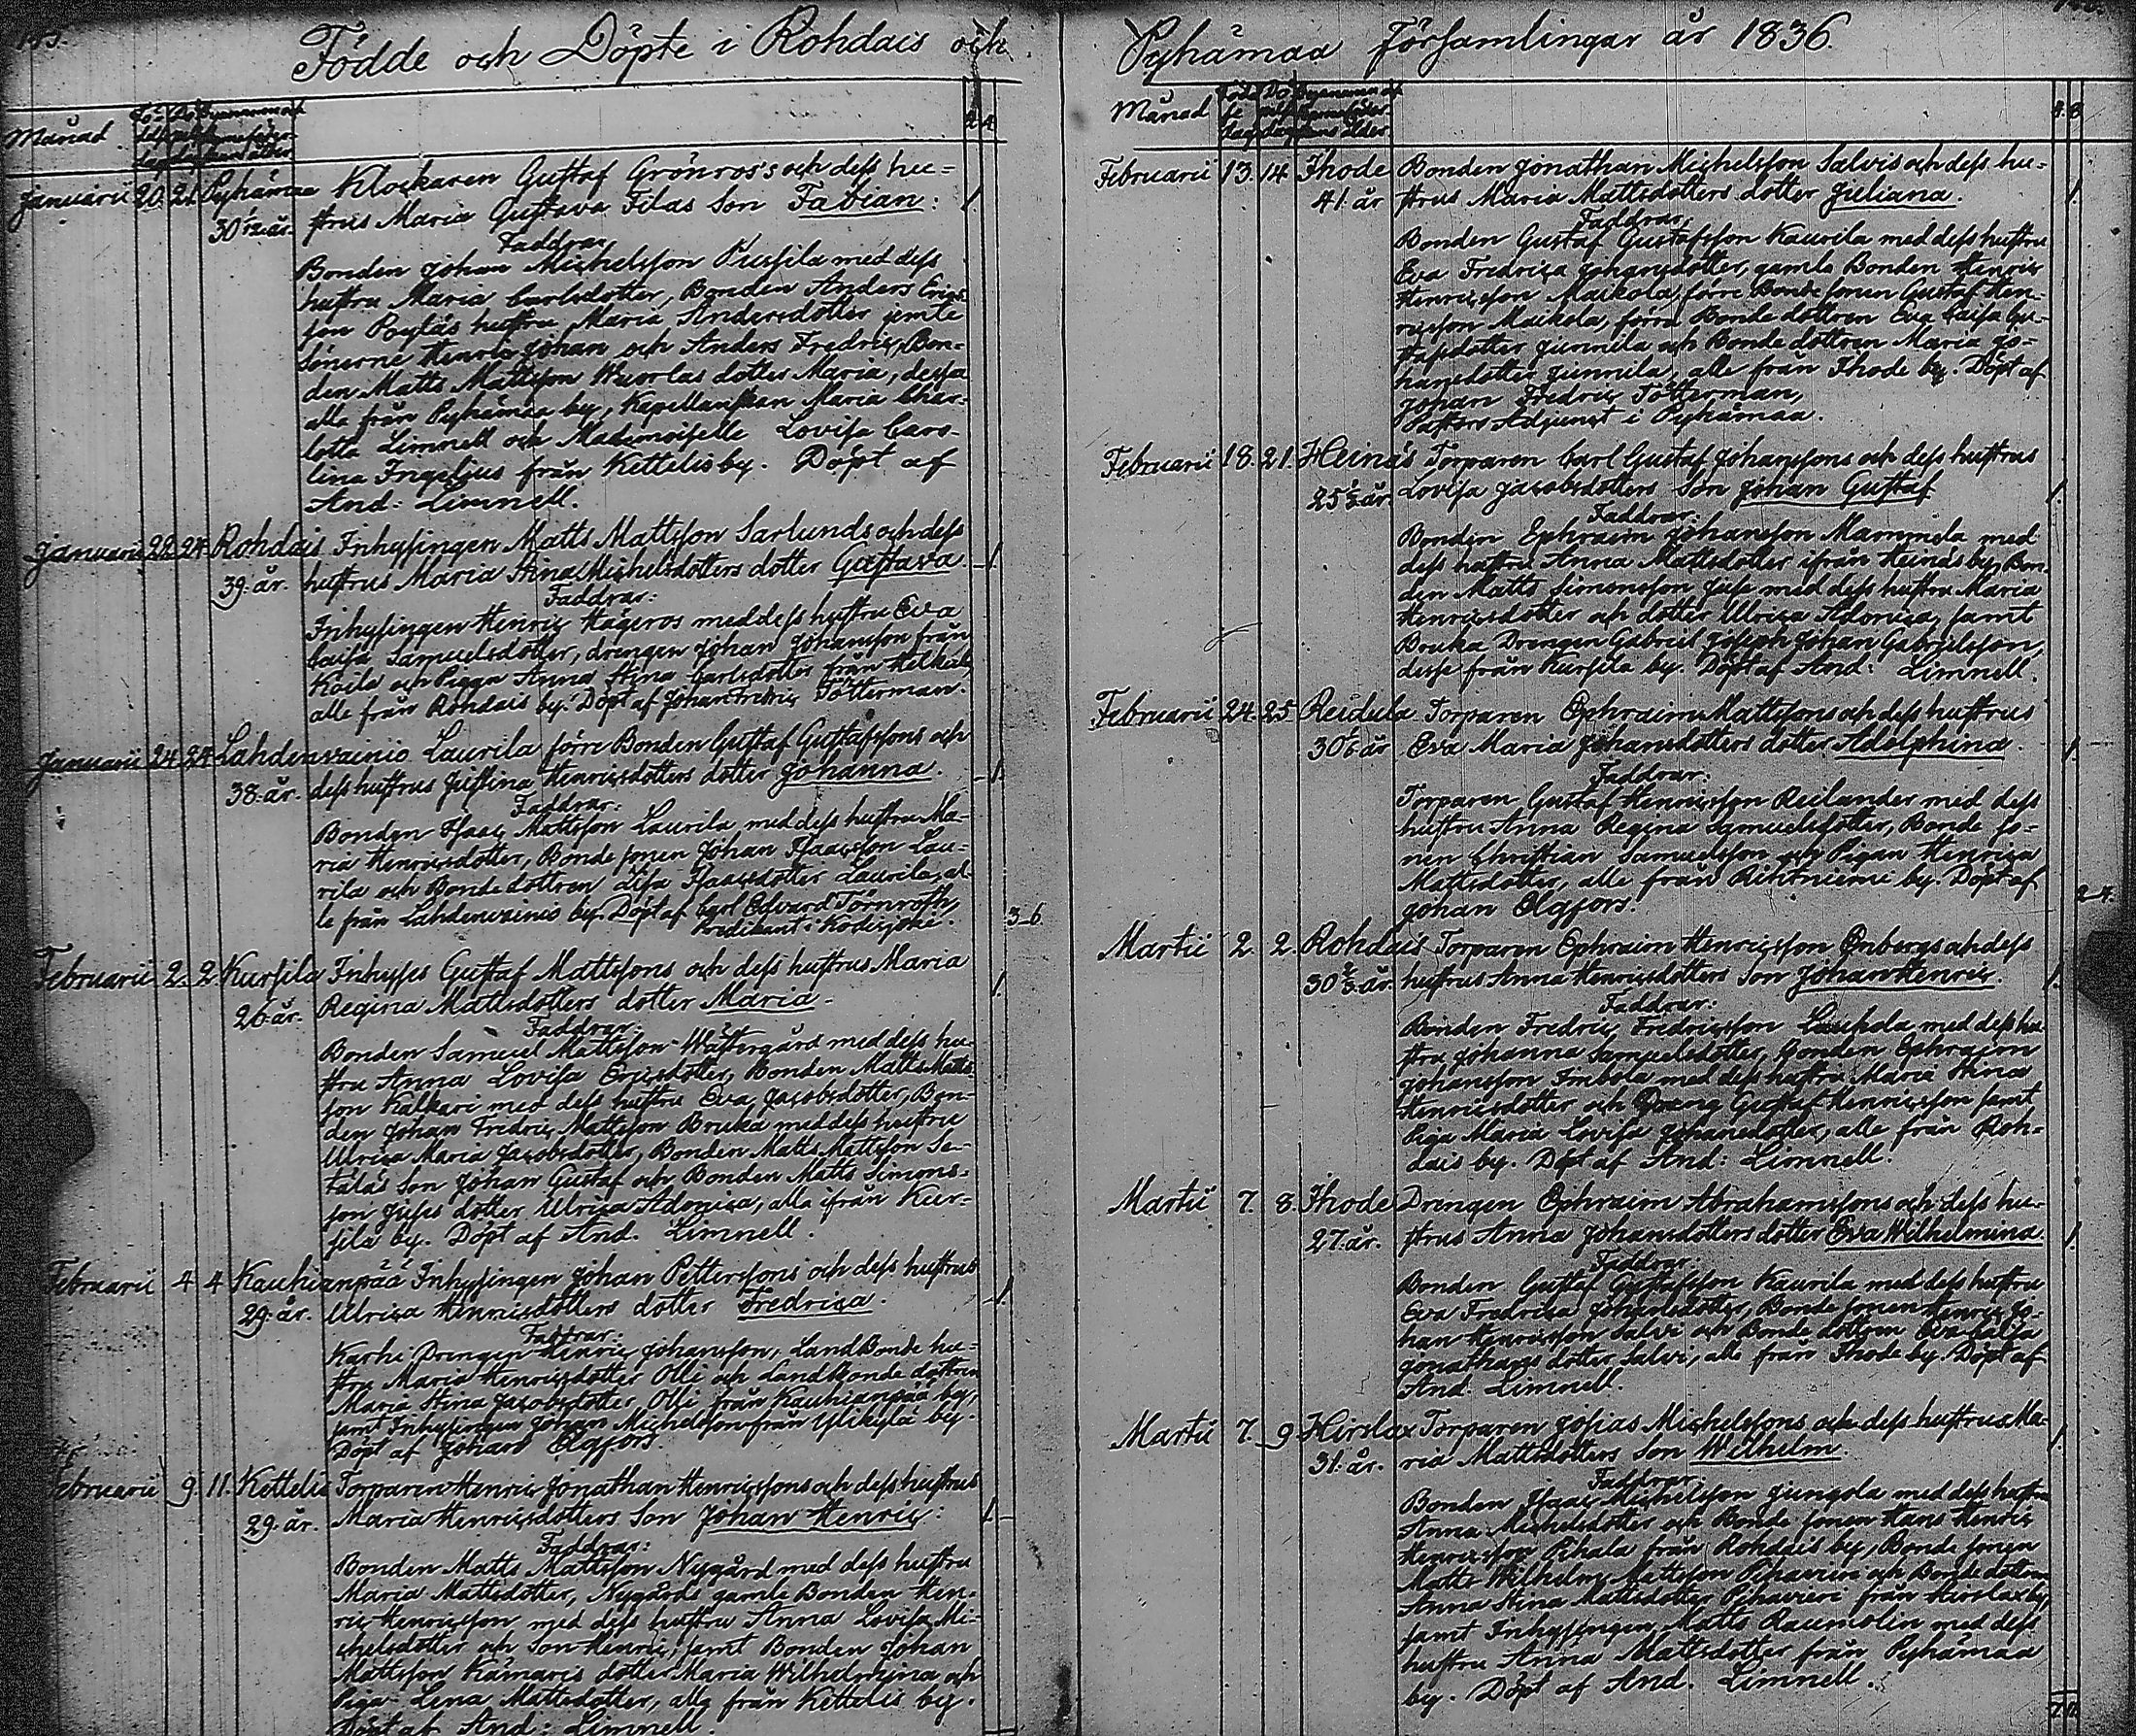 Födde och Döpte i Rohdais och
Månad
Januarii 20. 21. Pyhämaa Klockaren Gustaf Grönros's och dess hu=
30 1/12 år. strus Maria Gustava Filas Son Fabian: 1.
Faddrar
Bonden Johan Michelsson Pussila med dess
hustru Maria Carlsdotter, Bonden Anders Erics
son Pryläs hustru Maria Andersdotter jemte
Sönerne Henric Johan och Anders Fredric, Bon-
den Matts Mattsson Wuorlas dotter Maria, dessa
alla från Pyhämaa by, Kapellanskan Maria Char-
lotta Limnell och Mademoiselle Lovisa Caro-
lina Ingelius från Kettelis by. Döpt af
And: Limnell.
Januarii 22. 24. Rohdais Inhysingen Matts Mattsson Sarlunds och dess
39. år. hustrus Maria Stina Michelsdotters dotter Gustava 1.
Faddrar:
Inhysingen Henric Hägeros med dess hustru Eva
Caisa Samuelsdotter, drengen Johan Johansson från
Koila och Pigan Anna Stina Carlsdotter från
alle från Rohdais by. Döpt af Johan Fredric Tötterman.
Januarii 24 24 Lahdenvainio Laurila förre Bonden Gustaf Gustafssons och
38. år. dess hustrus Justina Henricsdotters dotter Johanna. 1.
Faddrar:
Bonden Isaac Mattsson Laurila med dess hustru Ma-
ria Henricsdotter, Bonde sonen Johan Isaacsson Lau-
rila och Bondedottren Lisa Isaacsdotter Laurila, al-
le från Lahdenvainio by. Döpt af Carl Edvard Törnroth,
Predikant i Kodisjoki. 3 6.
Februarii 2. 2. Kursila Inhyses Gustaf Mattssons och dess hustrus Maria
26. år. Regina Mattsdotters dotter Maria. 1.
Faddrar:
Bonden Samuel Mattsson Wästergård med dess hu-
stru Anna Lovisa Ericsdotter, Bonden Matts Matts-
son Kalkari med dess hustru Eva Jacobsdotter, Bon-
den Johan Fredric Mattsson Bruka med dess hustru
Ulrica Maria Jacobsdotter, Bonden Matts Mattsson Se-
täläs Son Johan Gustaf och Bonden Matts Simons-
son Juses dotter Ulrica Adonica, alla ifrån Kur-
sila by. Döpt af And. Limnell.
Februarii 4 4 Kauhianpää Inhysingen Johan Petterssons och dess hustrus
29. år. Ulrica Henricsdotters dotter Fredrica. 1.
Faddrar:
Karhi Drengen Henric Johansson, LandBonde hu-
stru Maria Henricsdotter Olli och Landbonde dottren
Maria Stina Jacobsdotter Olli från Kauhianpää by,
samt Inhysingen Johan Michelsson från Ylikylä by.
Döpt af Johan Elgfors.
Februarii 9. 11. Kettelis Torparen Henric Jonathan Henricssons och dess hustrus
29. år. Maria Henricsdotters Son Johan Henric: 1.
Faddrar:
Bonden Matts Mattsson Nygård med dess hustru
Maria Mattsdotter, Nygårds gamle Bonden Hen-
ric Henricsson med dess hustru Anna Lovisa Mi-
chelsdotter och Son Henric, samt Bonden Johan
Mattsson Kämaris dotter Maria Wilhelmina och
Piga Lena Mattsdotter, alla från Kettelis by.
Döpt af And: Limnell.
Pyhämaa Församlingar år 1836.
Månad
Februarii 13. 14. Ihode Bonden Jonathan Michelsson Salvis och dess hu-
41. år strus Maria Mattsdotters dotter Juliana. 1.
Faddrar:
Bonden Gustaf Gustafsson Kaurila med dess hustru
Eva Fredrica Johansdotter, gamle Bonden Henric
Henricsson Maikola, förre Bonde sonen Gustaf Hen-
ricsson Maikola, förra Bonde dottren Eva Caisa Gu-
stafsdotter Junnila och Bonde dottren Maria Jo-
hansdotter Junnila, alle från Ihode by. Döpt af
Johan Fredric Tötterman,
Pastors Adjunct i Pyhämaa.
Februarii 18. 21. Heinäs Torparen Carl Gustaf Johanssons och dess hustrus
25 år. Lovisa Jacobsdotters Son Johan Gustaf 1.
Faddrar:
Bonden Ephraim Johansson Mammela med
dess hustru Anna Mattsdotter ifrån Heinäs by, Bon-
den Matts Simonsson Juse med dess hustru Maria
Henricsdotter och dotter Ulrica Adonica, samt
Bruka Drengen Gabriel Joseph Johan Gabrielsson,
desse från Kursila by. Döpt af And: Limnell.
Februarii 24. 25 Reidula Torparen Ephraim Mattssons och dess hustrus
30 år Eva Maria Johansdotters dotter Adolphina. 1.
Faddrar:
Torparen Gustaf Henricsson Reilander med dess
hustru Anna Regina Samuelsdotter, Bonde so-
nen Christian Samuelsson och Pigan Henrica
Mattsdotter, alle från Rihtniemi by. Döpt af
Johan Elgfors. 2 4.
Martii 2. 2. Rohdais Torparen Ephraim Henricsson Enbergs och dess
30 år. hustrus Anna Henricsdotters Son Johan Henric. 1.
Faddrar:
Bonden Fredric Fredricsson Laukola med dess hu-
stru Johanna Samuelsdotter, Bonden Ephraim
Johansson Imbola med dess hustru Maria Stina
Henricsdotter och Dreng Gustaf Henricsson samt
Piga Maria Lovisa Johansdotter, alle från Roh-
dais by. Döpt af And: Limnell.
Martii 7. 8. Ihode Drengen Ephraim Abrahamssons och dess hu-
27. år. strus Anna Johansdotters dotter Eva Wilhelmina. 1.
Faddrar:
Bonden Gustaf Gustafsson Kaurila med dess hustru
Eva Fredrica Johansdotter, Bonde sonen Henric Jo-
han Henricsson Salvi och Bonde dottren Eva Caisa
Jonathans dotter Salvi, alle från Ihode by. Döpt af
And. Limnell.
Martii 7. 9 Hirslax Torparen Josias Michelssons och dess hustrus Ma-
31. år. ria Mattsdotters Son Wilhelm. 1.
Faddrar:
Bonden Isaac Michelsson Jungola med dess hustru
Anna Michelsdotter och Bonde sonen Hans Henric
Henricsson Pihala från Rohdais by, Bonde sonen
Matts Wilhelm Mattsson Pihavieri och Bonde dottren
Anna Stina Mattsdotter Pihavieri från Hirslax by,
samt Inhysingen Matts Raumolin med dess
hustru Anna Mattsdotter från Pyhämaa
by. Döpt af And. Limnell.